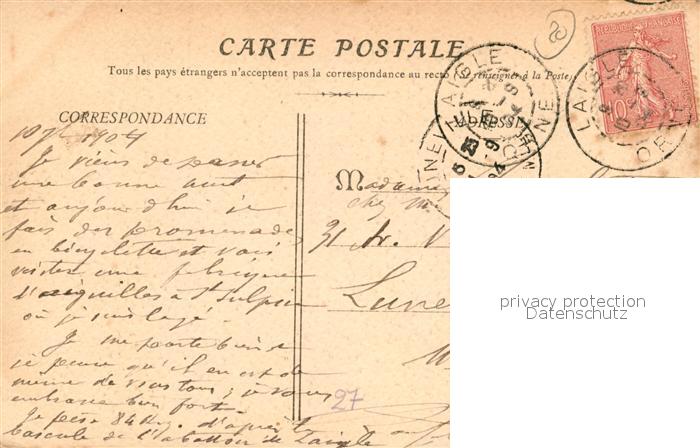 20
CARTE POSTALE
Tous les pays étrangers n'acceptent pas la correspondance au recto (Se renseigner à la Poste)
REPUBLIQUE FRANÇAISE
10
LAIGLE
ORNE
LAIGLE
ORNE
CORRESPONDANCE
ADRESSE
1904
Je viens de passer
une bonne nuit
et aujourd'hui je
fais des promenades
en bicyclette et vais
visiter une fabrique
d'aiguilles à St Sulpice
où je suis logé.
Je me porte bien et
je pense qu'il en est de
même de vous tous; je vous
embrasse bien fort.
Je pèse 84 Kg. d'après la
bascule de l'abattoir de Laigle
Madame
chez M
31 Av. V
Lune
27
privacy protection
Datenschutz